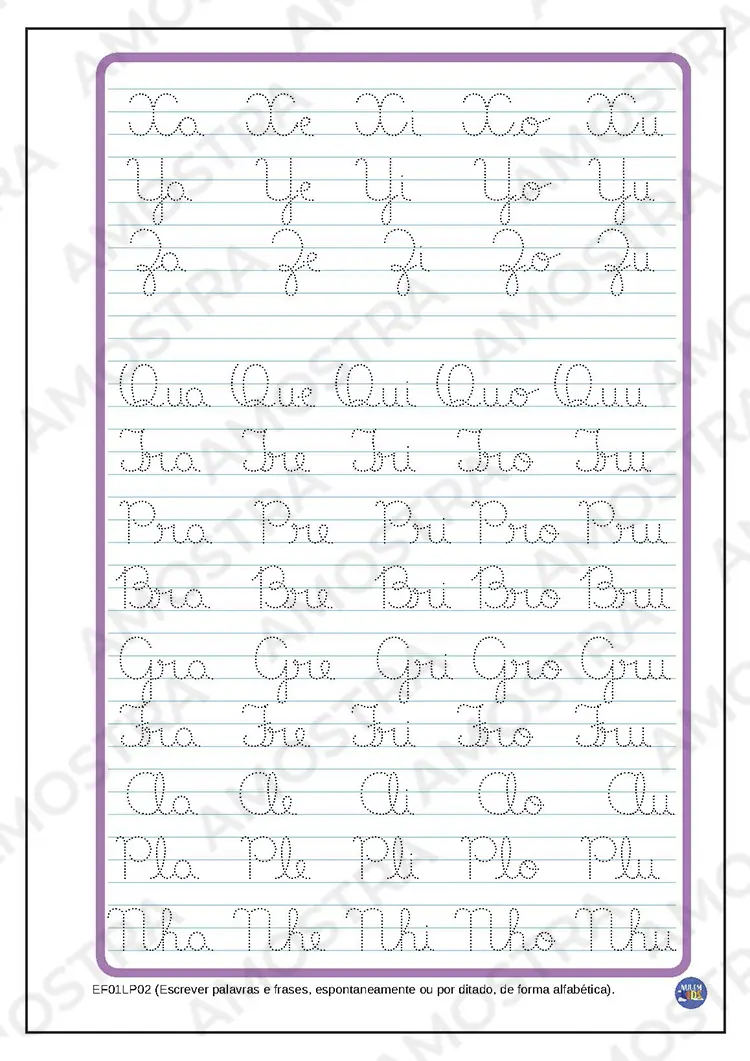 Xa Xe Xi Xo Xu
Ya Ye Yi Yo Yu
Za Ze Zi Zo Zu
Qua Que Qui Quo Quu
Fra Fre Fri Fro Fru
Pra Pre Pri Pro Pru
Bra Bre Bri Bro Bru
Gra Gre Gri Gro Gru
Fra Fre Fri Fro Fru
Cla Cle Cli Clo Clu
Pla Ple Pli Plo Plu
Nha Nhe Nhi Nho Nhu
EF01LP02 (Escrever palavras e frases, espontaneamente ou por ditado, de forma alfabética).
AMOSTRA